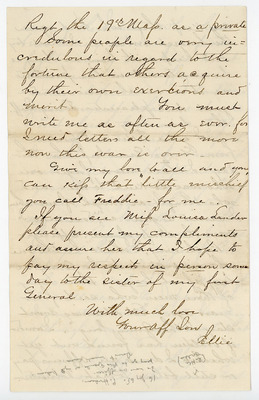 Regt, the 19th Mass. as a private
Some people are very in-
credulous in regard to the
fortune that others acquire
by their own exertions and
merit. You must
write me as often as ever. for
I need letters all the more
now this war is over.
Give my love to all and you
can kiss that little mischief
you call Freddie - for me.
If you see Miss Louisa Lander
please present my compliments
and assure her that I hope to
pay my respects in person some
day to the sister of my first
General.
With much love
Your Aff Son
Ellie